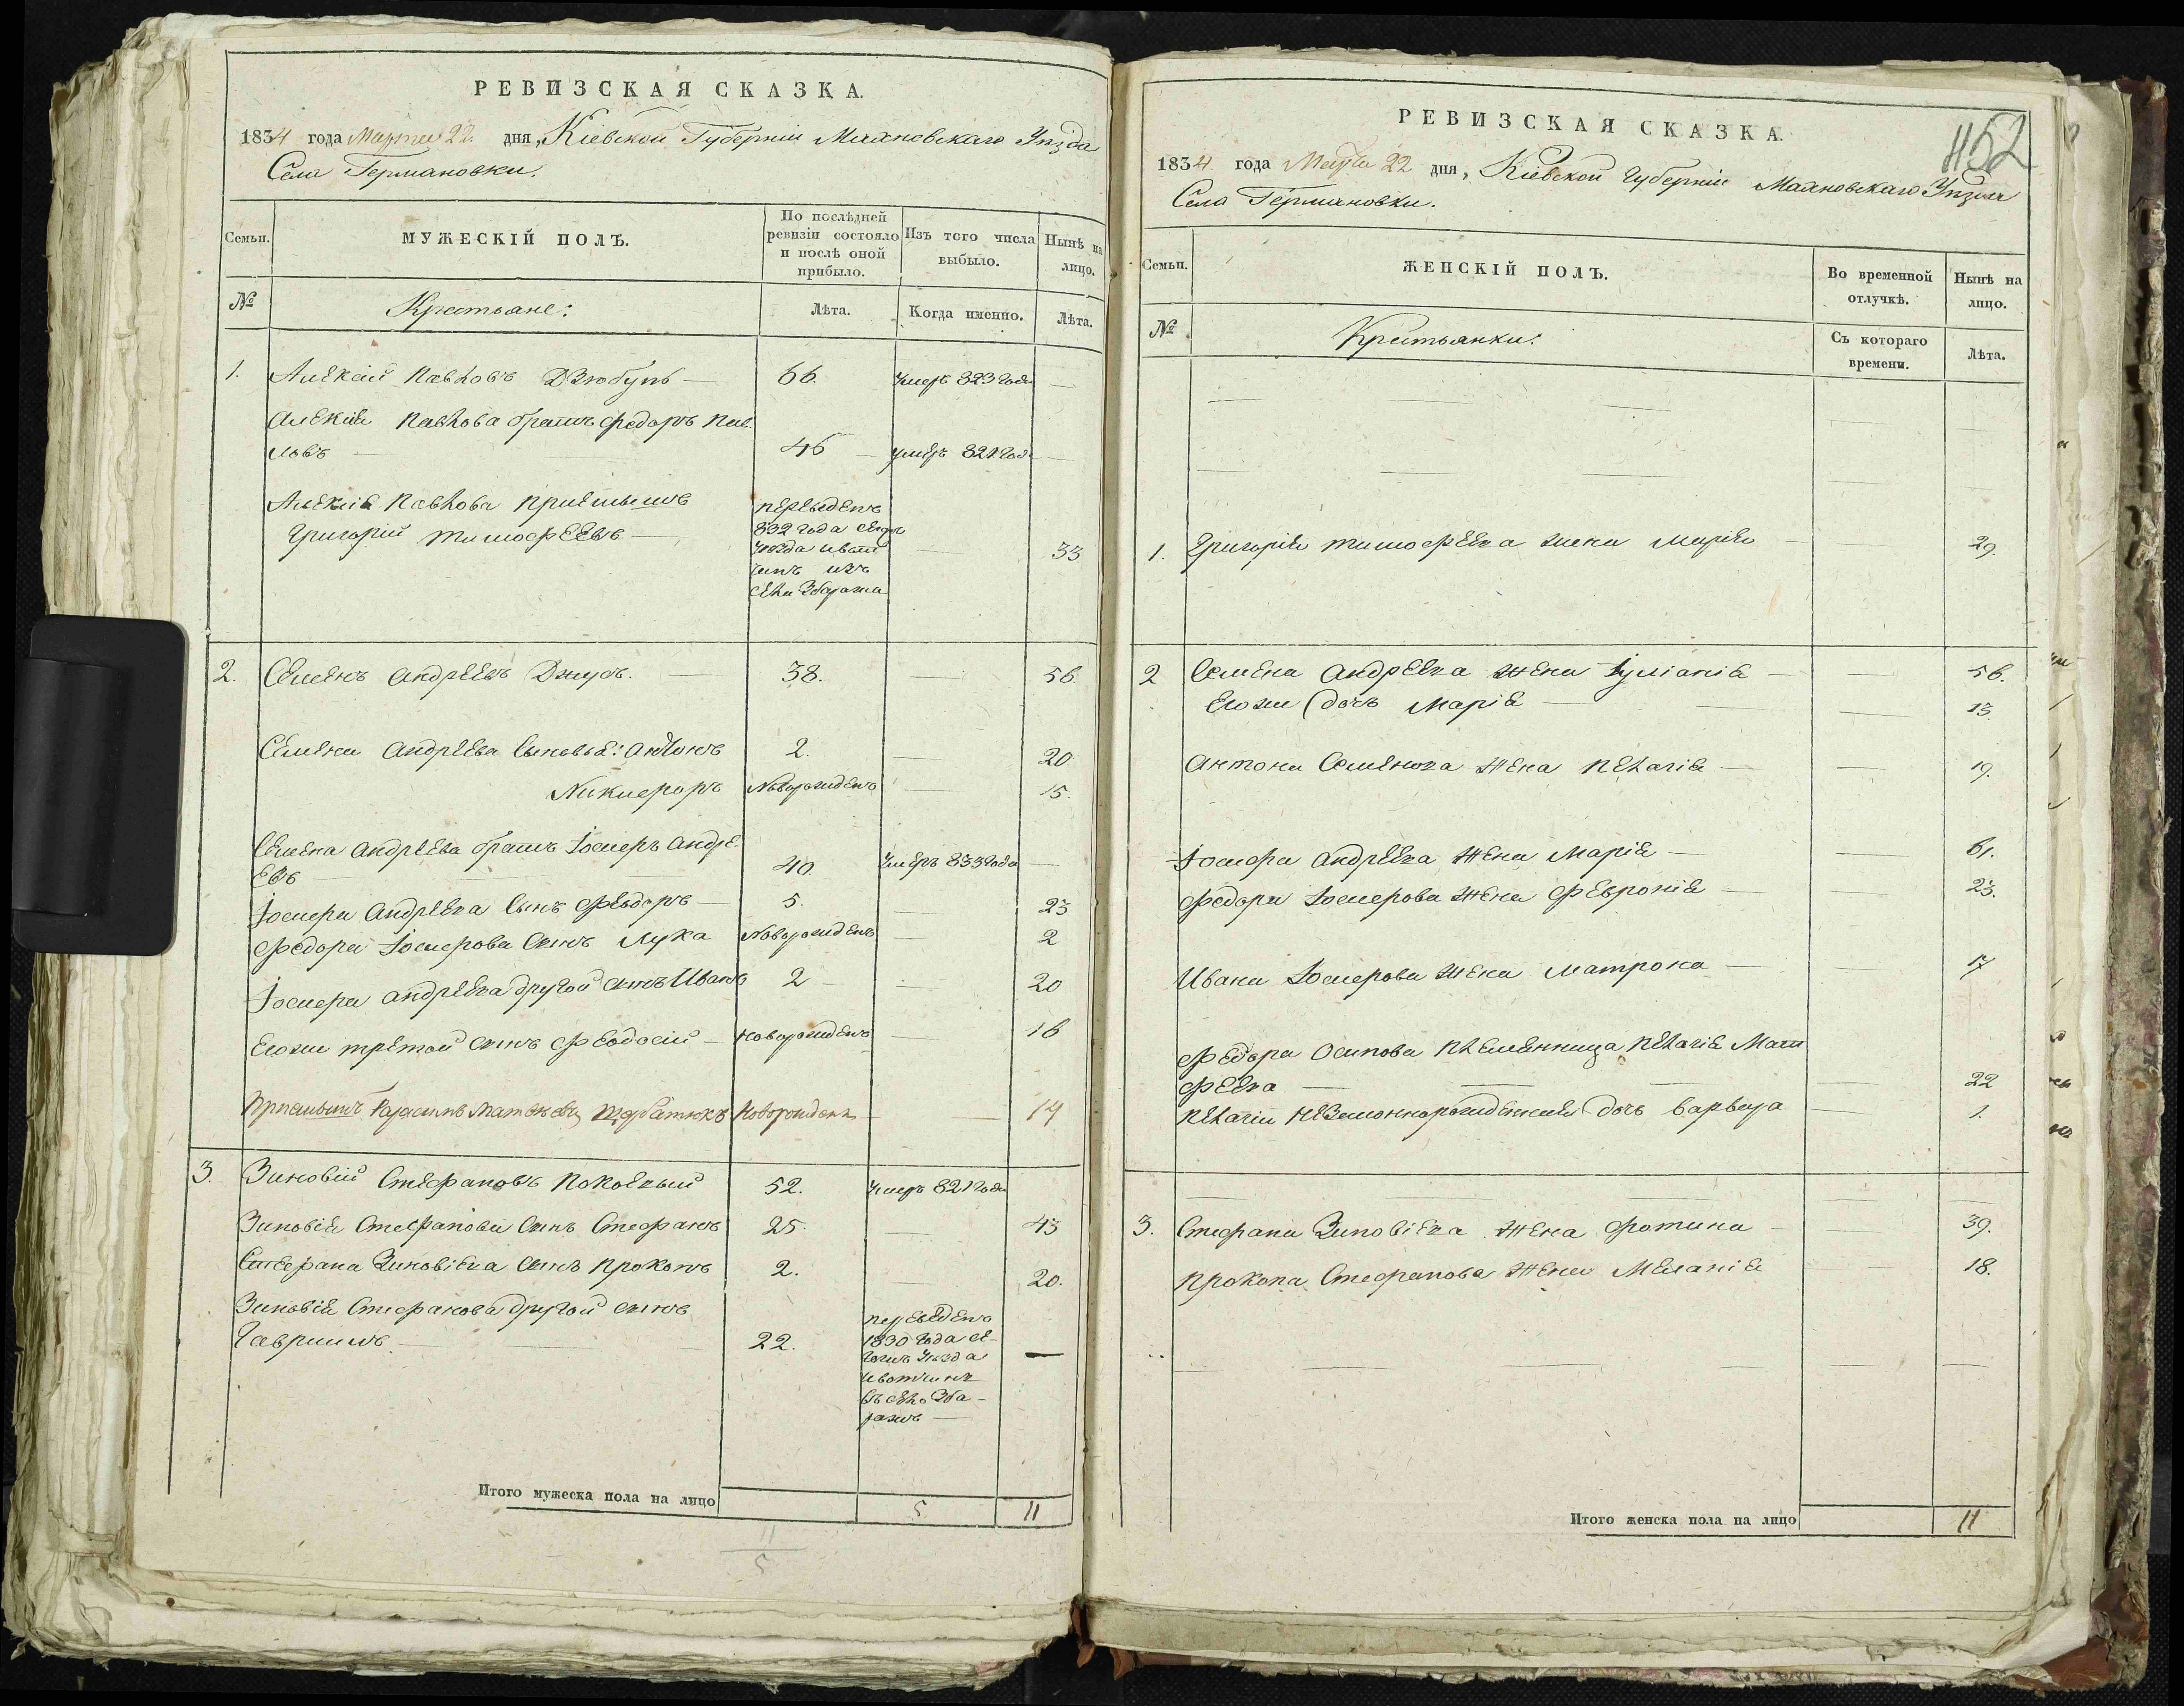 РЕВИЗСКАЯ СКАЗКА.
1834 года Марта 22. дня, Кіевской Губерніи Махновскаго Уѣзда
Села Германовки.
Семьи.
МУЖЕСКІЙ ПОЛЪ.
По послѣдней ревизіи состояло и послѣ оной прибыло.
Изъ того числа выбыло.
Нынѣ на лицо.
№
Крестьяне:
Лѣта.
Когда именно.
Лѣта.
1. Алексій Павловъ Дзюбунь — 66. Умеръ 823 года —
Алексія Павлова братъ Федоръ Пав-
ловъ — 46 — умеръ 821 года —
Алексія Павлова приемышъ
Григорій Тимофеевъ — 33
переведенъ
832 года сего жъ
Уезда
изъ
села Збаража
2. Семенъ Андреевъ Джусъ. — 38. — 56
Семена Андреева сыновья: Антонъ 2. — 20
Никифоръ Новорожденъ — 15.
Семена Андреева братъ Іосифъ Андре-
евъ — 40. Умеръ 833 года —
Іосифа Андреева сынъ Феодоръ — 5. — 23
Федора Іосифова сынъ Лука Новорожденъ — 2
Іосифа Андреева другой сынъ Иванъ 2 — 20
Егоже третой сынъ Феодосій — Новорожденъ — 16
Приемышъ Матвеевъ Новорожденъ — 14
3. Зиновій Стефановъ 52. Умеръ 821 года
Зиновія Стефанова сынъ Стефанъ 25. — 43
Стефана Зиновіева сынъ Прокопъ 2. — 20.
Зиновія Стефанова другой сынъ
Гавриилъ. — 22. —
переведенъ
1830 года се-
гожъ Уезда
въ село Зба-
ражъ —
Итого мужеска пола на лицо 5 11
11
5
РЕВИЗСКАЯ СКАЗКА.
452
1834. года Марта 22 дня, Кіевской Губерніи Махновскаго Уѣзда
Села Германовки.
Семьи.
ЖЕНСКІЙ ПОЛЪ.
Во временной отлучкѣ.
Нынѣ на лицо.
№
Крестьянки:
Съ котораго времени.
Лѣта.
1. Григорія Тимофеева жена Марія — 29.
2 Семена Андреева жена Іуліанія — 56.
Егоже дочь Марія — 13.
Антона Семенова жена Пелагія — 19.
Іосифа Андреева жена Марія — 61.
Федора Іосифова жена Февронія — 23.
Ивана Іосифова жена Матрона — 17
Федора Осипова племянница Пелагія Мат-
феева — 22
Пелагіи незаконнорожденная дочь Варвара 1.
3. Стефана Зиновіева жена Фотина — 39.
Прокопа Стефанова жена Меланія 18.
Итого женска пола на лицо 11